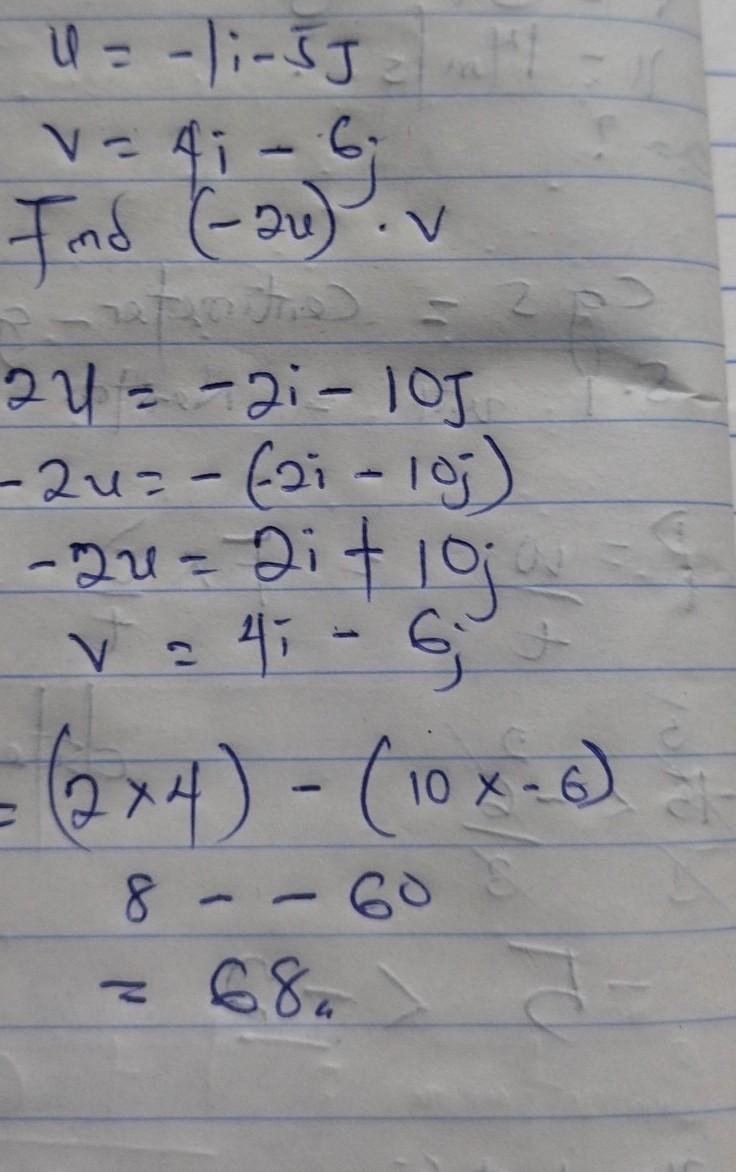 u = -1i - 5J
v = 4i - 6j
Find (-2u) . v
2u = -2i - 10J
-2u = -(-2i - 10j)
-2u = 2i + 10j
v = 4i - 6j
= (2 x 4) - (10 x -6)
8 - - 60
= 68